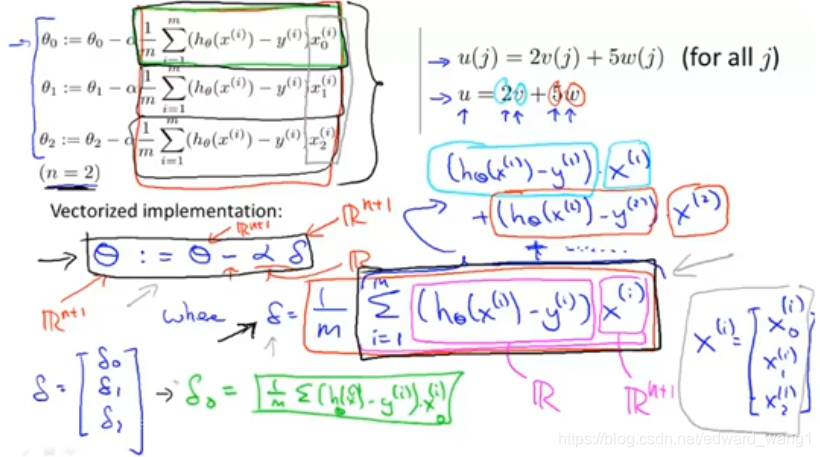 θ₀ := θ₀ − α 1/m ∑_{i=1}^{m} (h_θ(x^{(i)}) − y^{(i)}) x_0^{(i)}
θ₁ := θ₁ − α 1/m ∑_{i=1}^{m} (h_θ(x^{(i)}) − y^{(i)}) x_1^{(i)}
θ₂ := θ₂ − α 1/m ∑_{i=1}^{m} (h_θ(x^{(i)}) − y^{(i)}) x_2^{(i)}
(n = 2)
→ u(j) = 2v(j) + 5w(j) (for all j)
→ u = 2v + 5w
(h_θ(x^{(1)}) − y^{(1)}) · x^{(1)}
+ (h_θ(x^{(2)}) − y^{(2)}) · x^{(2)}
+ ......
Vectorized implementation:
ℝ^{n+1} ℝ^{n+1}
→ θ := θ − α δ
ℝ^{n+1} ℝ
where → δ = 1/m ∑_{i=1}^{m} (h_θ(x^{(i)}) − y^{(i)}) x^{(i)}
ℝ ℝ^{n+1}
x^{(i)} = [x_0^{(i)} x_1^{(i)} x_2^{(i)}]
δ = [δ₀ δ₁ δ₂] → δ₀ = 1/m ∑ (h_θ(x^{(i)}) − y^{(i)}) · x_0^{(i)}
https://blog.csdn.net/edward_wang1